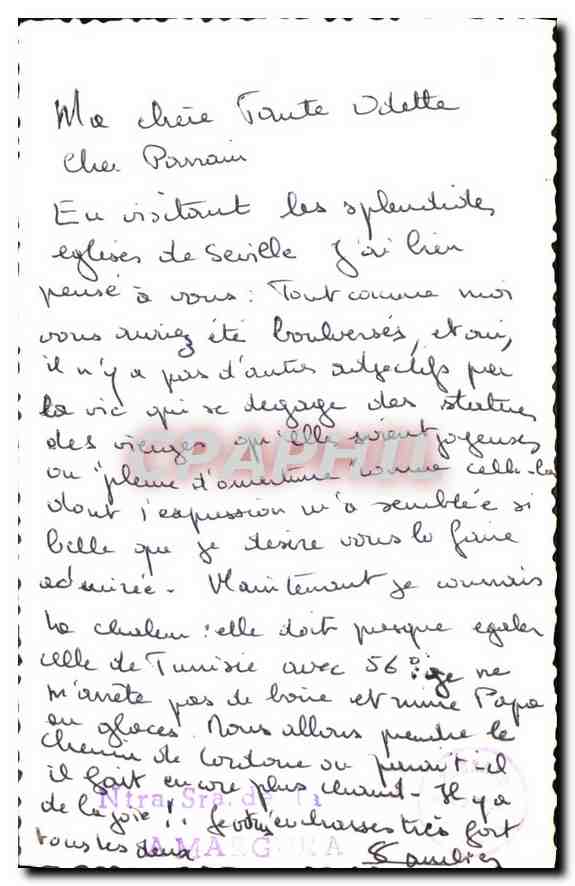 Ma chère Tante Odette
Cher Parrain
En visitant les splendides
eglises de Seville j'ai bien
pensé à vous : Tout comme moi
vous auriez été boulversés, et oui,
il n'y a pas d'autres adjectifs par
la vie qui se degage des statues
des vierges qu'elles soient joyeuses
ou "pleine d'amertume" comme celle-la
dont l'expression m'a semblée si
belle que je desire vous la faire
admirée - Maintenant je connais
la chaleur : elle doit presque egaler
celle de Tunisie avec 56° : je ne
m'arrête pas de boire et même Papa
ou glaces. Nous allons prendre le
chemin de Cordoue ou parait-il
il fait encore plus chaud - Il y a
de la joie !! Je vous embrasse très fort
tous les deux
Ntra. Sra. de la
AMARGURA
CPAPHIL